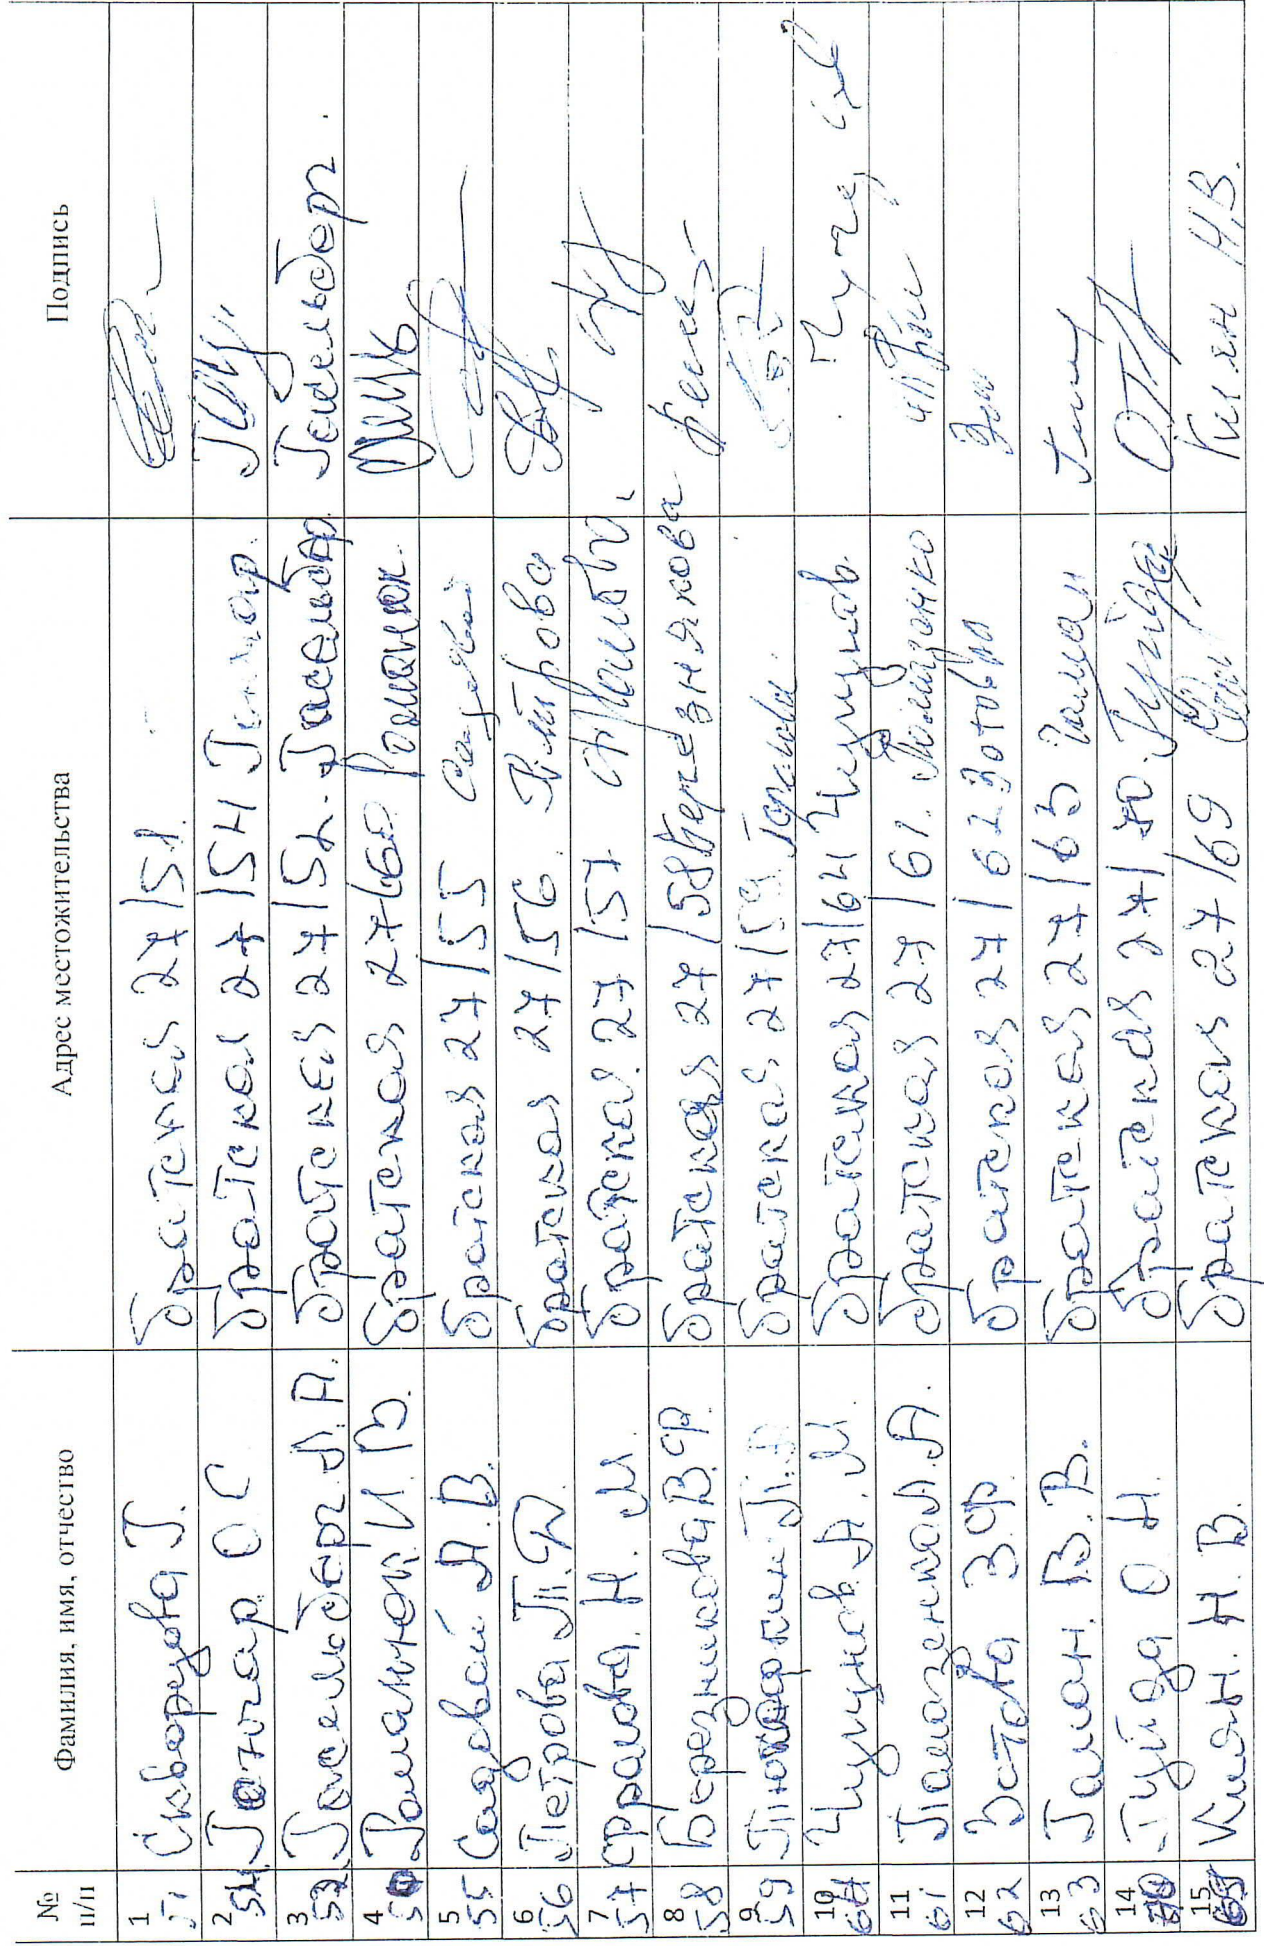 № п/п Фамилия, имя, отчество Адрес местожительства Подпись
1 51 Скворцова Г. братская 27/51.
2 54 Гончар О С братская 27/54 Гончар.
3 52 Гасельберг Л.А. братская 27/52. Гасельбер Гасельберг.
4 Романюк И. В. братская 27/60 Романюк.
5 55 Садовай А.В. братская 27/55
6 56 Петрова Л.Д. братская 27/56 Петрова
7 57 Фролова Н. М. братская 27/57 Фролова
8 58 Березникова В.Ф. братская 27/58 Березнякова
9 59 братская 27/59
10 64 Чугунов А.М. братская 27/64 Чугунов.
11 61 Памазенко Л.А. братская 27/61.
12 62 Зотова З.Ф. братская 27/62 Зотова
13 63 Галан. В.В. братская 27/63 Галан
14 70 Гуйда О Н. братская 27/70. Гуйда
15 Килян Н. В. братская 27/69 Килян Н.В.